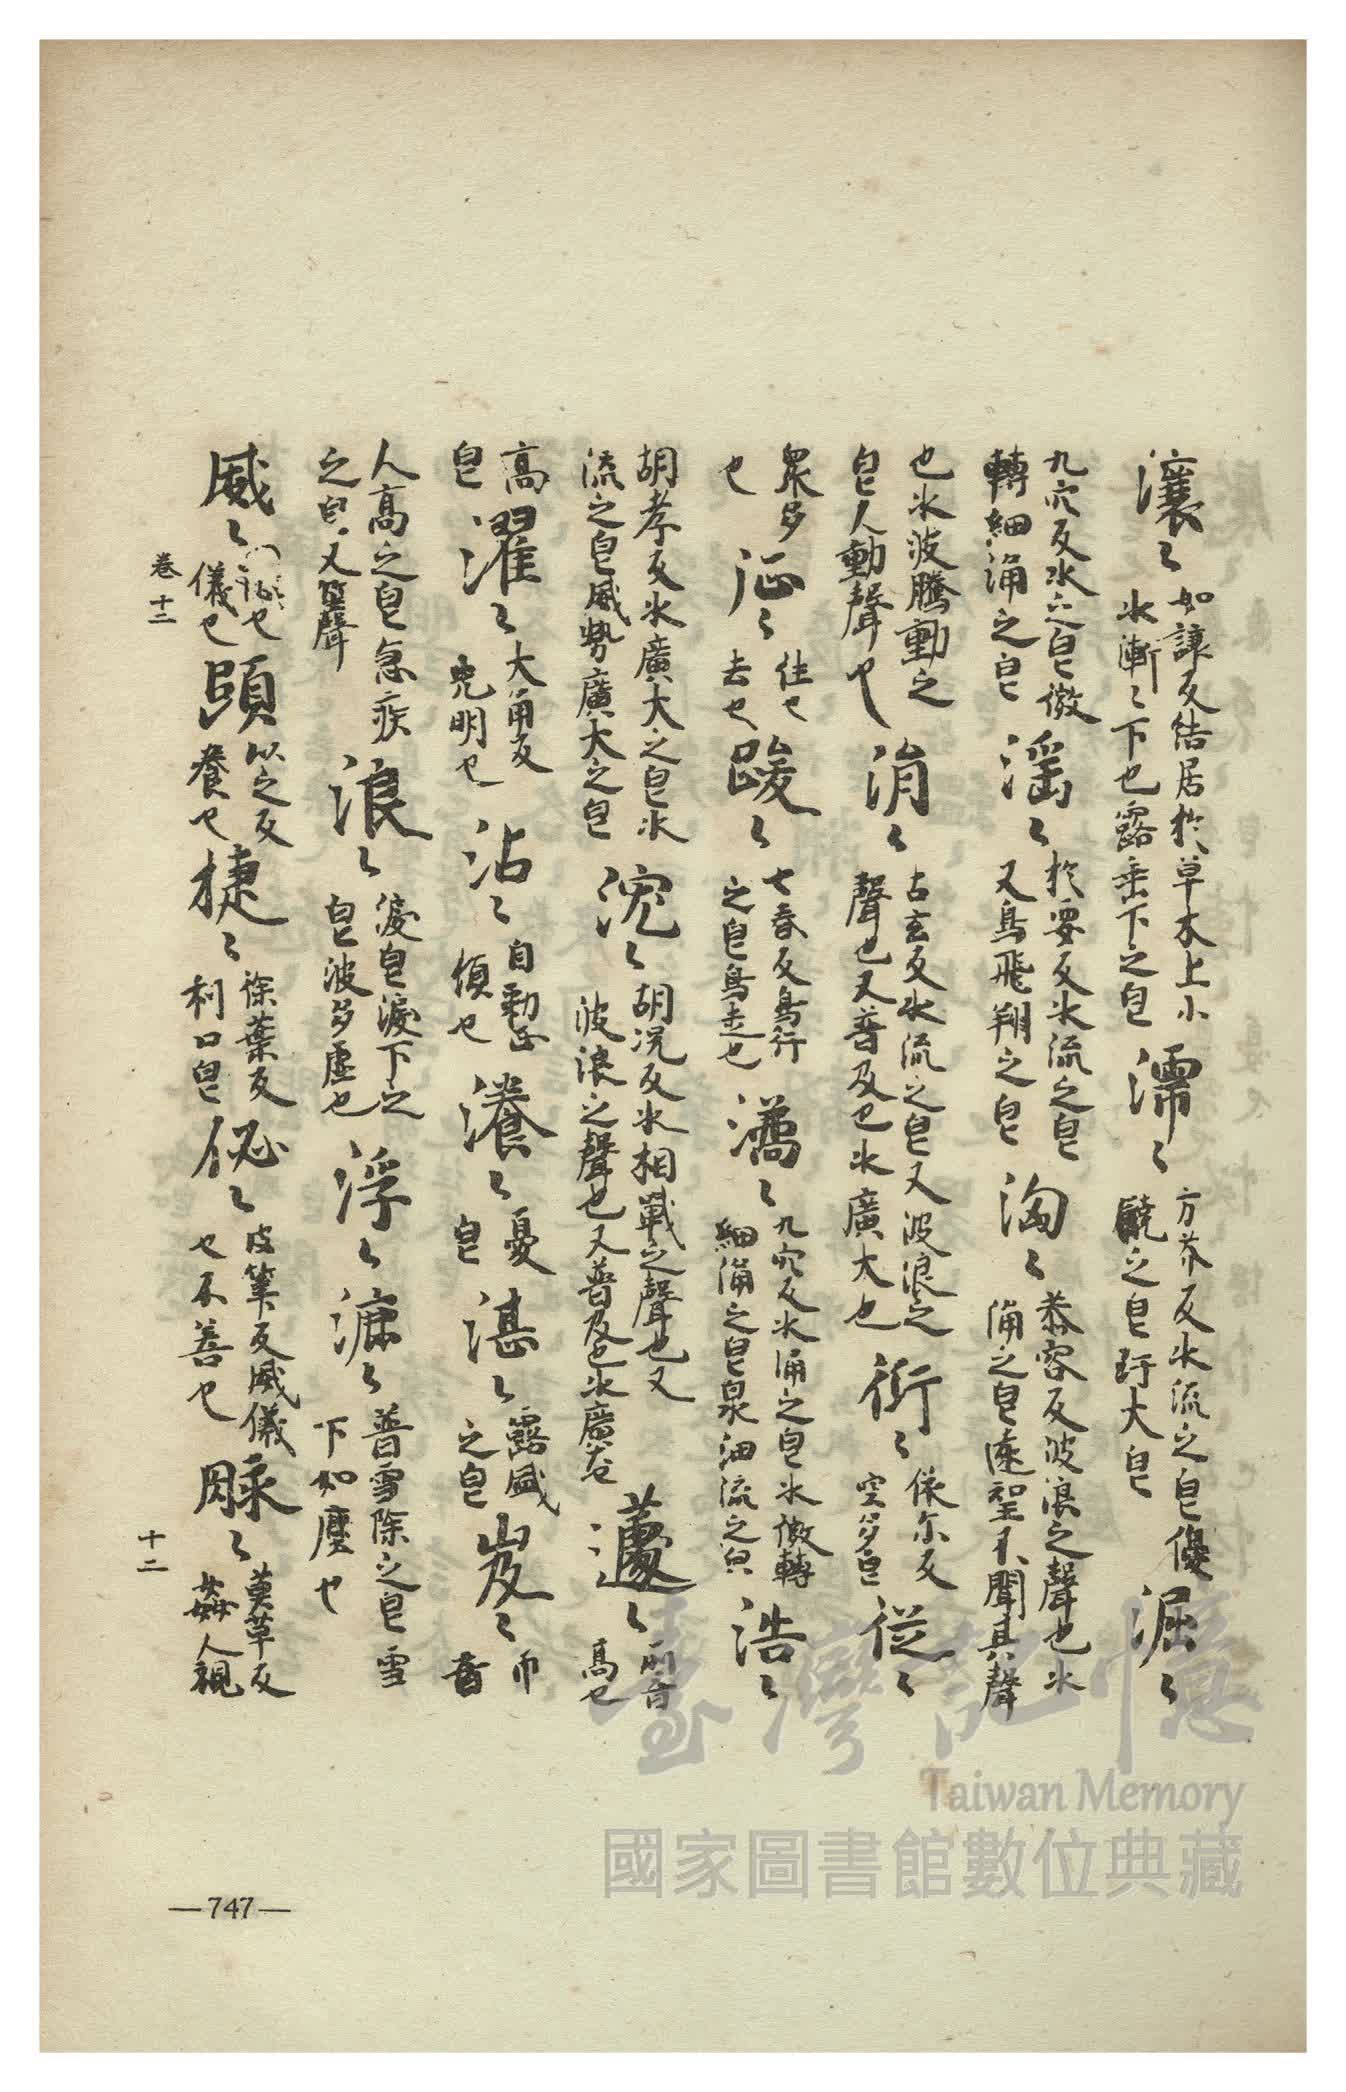 瀼〻如讓反结居於草木上小水漸〻下也露垂下之皃濡〻方芥反水流之皃儍髐之皃玗大皃淈〻
九穴反水之皃微轉細涌之皃滛〻於要反水流之皃又鳥飛翔之皃洶〻恭容反波浪之聲也水涌之皃遠聖不聞其聲
也水波騰動之皃人動聲也涓〻古玄反水流之皃又波浪之聲也又普及也水廣大也衎〻依尓反空多皃従〻
衆多也征〻往也去也踆〻七春反鳥行之皃鳥走也潏〻九穴反水涌之皃水微轉細涌之皃泉油流之皃浩〻
胡孝反水廣大之皃水流之皃威勢廣大之皃滂〻胡况反水相戰之聲也又波浪之聲也又普及也水廣大皃蘧〻高也
高皃濯〻大角反光明也沾〻自動正傾也瀁〻憂皃湛〻露盛之皃岌〻
人高之皃急疾之皃又笙聲浪〻淚皃淚下之皃波多虛也浮〻漉〻普雪除之皃雪下如塵也
威〻儀也頤以之反養也捷〻徐葉反利口皃佖〻皮筆反威儀也不善也脉〻莫革反姦人視
卷十二
十二
—747—
臺灣記憶
Taiwan Memory
國家圖書館數位典藏